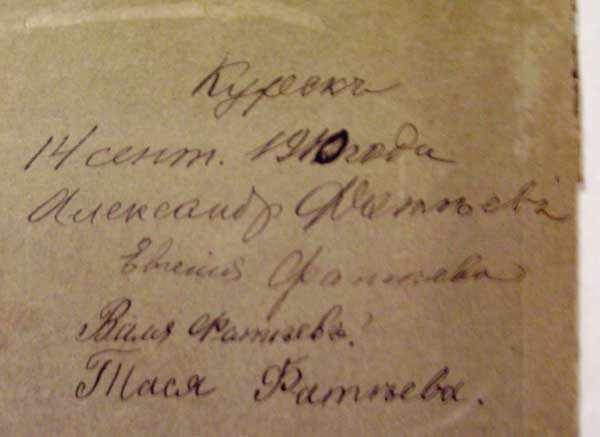 Курскъ
14 сент. 1910 года
Александр Фатьяевъ
Евгенія Фатьяева
Валя Фатьяевъ.
Тася Фатьяева.